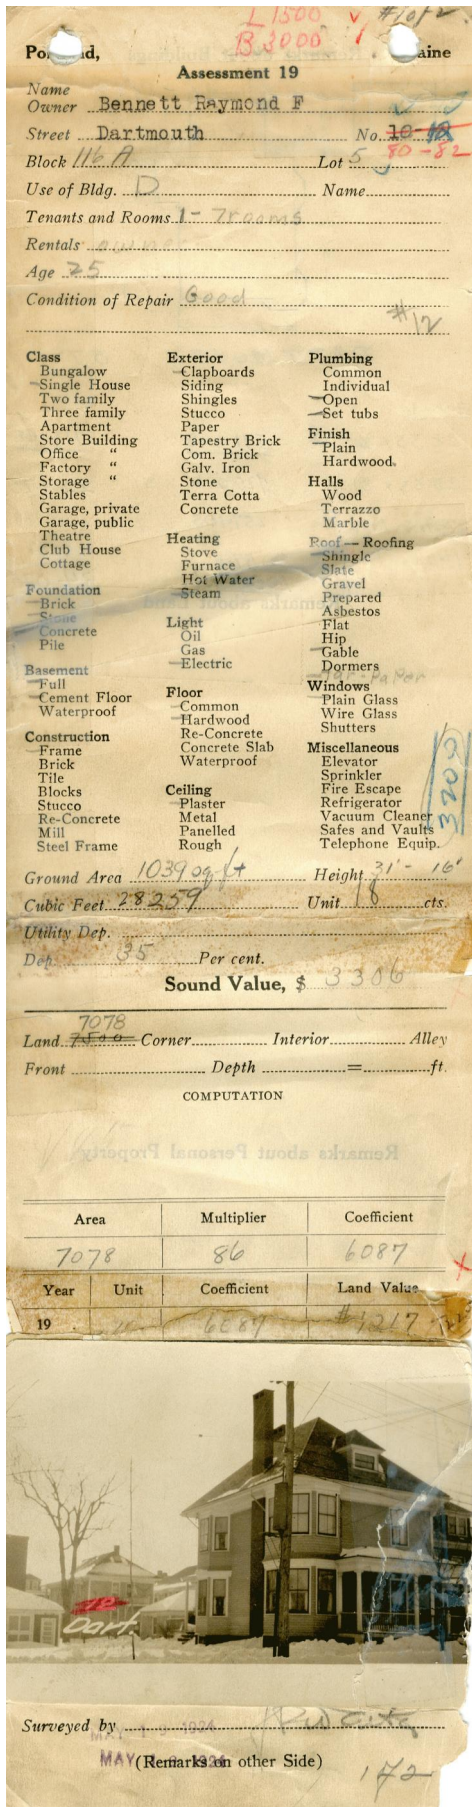 L 1500 #1 of 2
B 3000
Portland, Maine
Assessment 19
Name
Owner Bennett Raymond F
Street Dartmouth No. 10-12
80-82
Block 116 A Lot 5
Use of Bldg. D Name
Tenants and Rooms 1 - 7 rooms
Rentals owner
Age 25
Condition of Repair Good
#12
Class
Bungalow
Single House
Two family
Three family
Apartment
Store Building
Office "
Factory "
Storage "
Stables
Garage, private
Garage, public
Theatre
Club House
Cottage
Foundation
Brick
Stone
Concrete
Pile
Basement
Full
Cement Floor
Waterproof
Construction
Frame
Brick
Tile
Blocks
Stucco
Re-Concrete
Mill
Steel Frame
Exterior
Clapboards
Siding
Shingles
Stucco
Paper
Tapestry Brick
Com. Brick
Galv. Iron
Stone
Terra Cotta
Concrete
Heating
Stove
Furnace
Hot Water
Steam
Light
Oil
Gas
Electric
Floor
Common
Hardwood
Re-Concrete
Concrete Slab
Waterproof
Ceiling
Plaster
Metal
Panelled
Rough
Plumbing
Common
Individual
Open
Set tubs
Finish
Plain
Hardwood.
Halls
Wood
Terrazzo
Marble
Roof — Roofing
Shingle
Slate
Gravel
Prepared
Asbestos
Flat
Hip
Gable
Dormers
Tar-Paper
Windows
Plain Glass
Wire Glass
Shutters
Miscellaneous
Elevator
Sprinkler
Fire Escape
Refrigerator
Vacuum Cleaner
Safes and Vaults
Telephone Equip.
3200
Ground Area 1039 sq ft Height 31' - 16'
Cubic Feet 28259 Unit 18 cts.
Utility Dep.
Dep. 35 Per cent.
Sound Value, $ 3306
7078
Land 7500 Corner Interior Alley
Front Depth = ft.
COMPUTATION
Remarks about Personal Property
Area Multiplier Coefficient
7078 86 6087
Year Unit Coefficient Land Value
19 6087 #1217
Dart.
Surveyed by
MAY 19 1924
(Remarks on other Side)
172